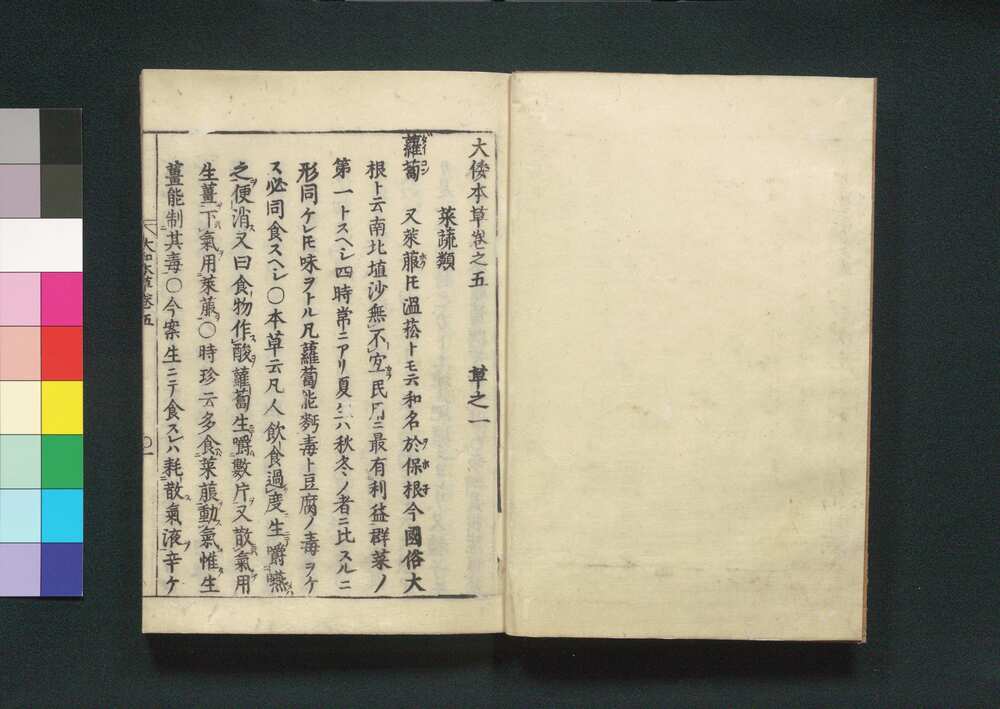 大倭本草卷之五　草之一
菜蔬類
蘿蔔　又萊菔トモ溫菘トモ云和名於保根今國俗大
根ト云南北埴沙無不宜民用ニ最有利益群菜ノ
第一トスヘシ四時常ニアリ夏生ハ秋冬ノ者ニ比スルニ
形同ケレトモ味ヲトル凡蘿蔔能麪毒ト豆腐ノ毒ヲケ
ス必同食スヘシ〇本草云凡人飲食過度生嚼嚥
之便消又曰食物作酸蘿蔔生嚼數片又散氣用
生薑下氣用萊菔〇時珍云多食萊菔動氣惟生
薑能制其毒〇今案生ニテ食スレハ耗散氣液辛ケ
大和本草卷五
〇一